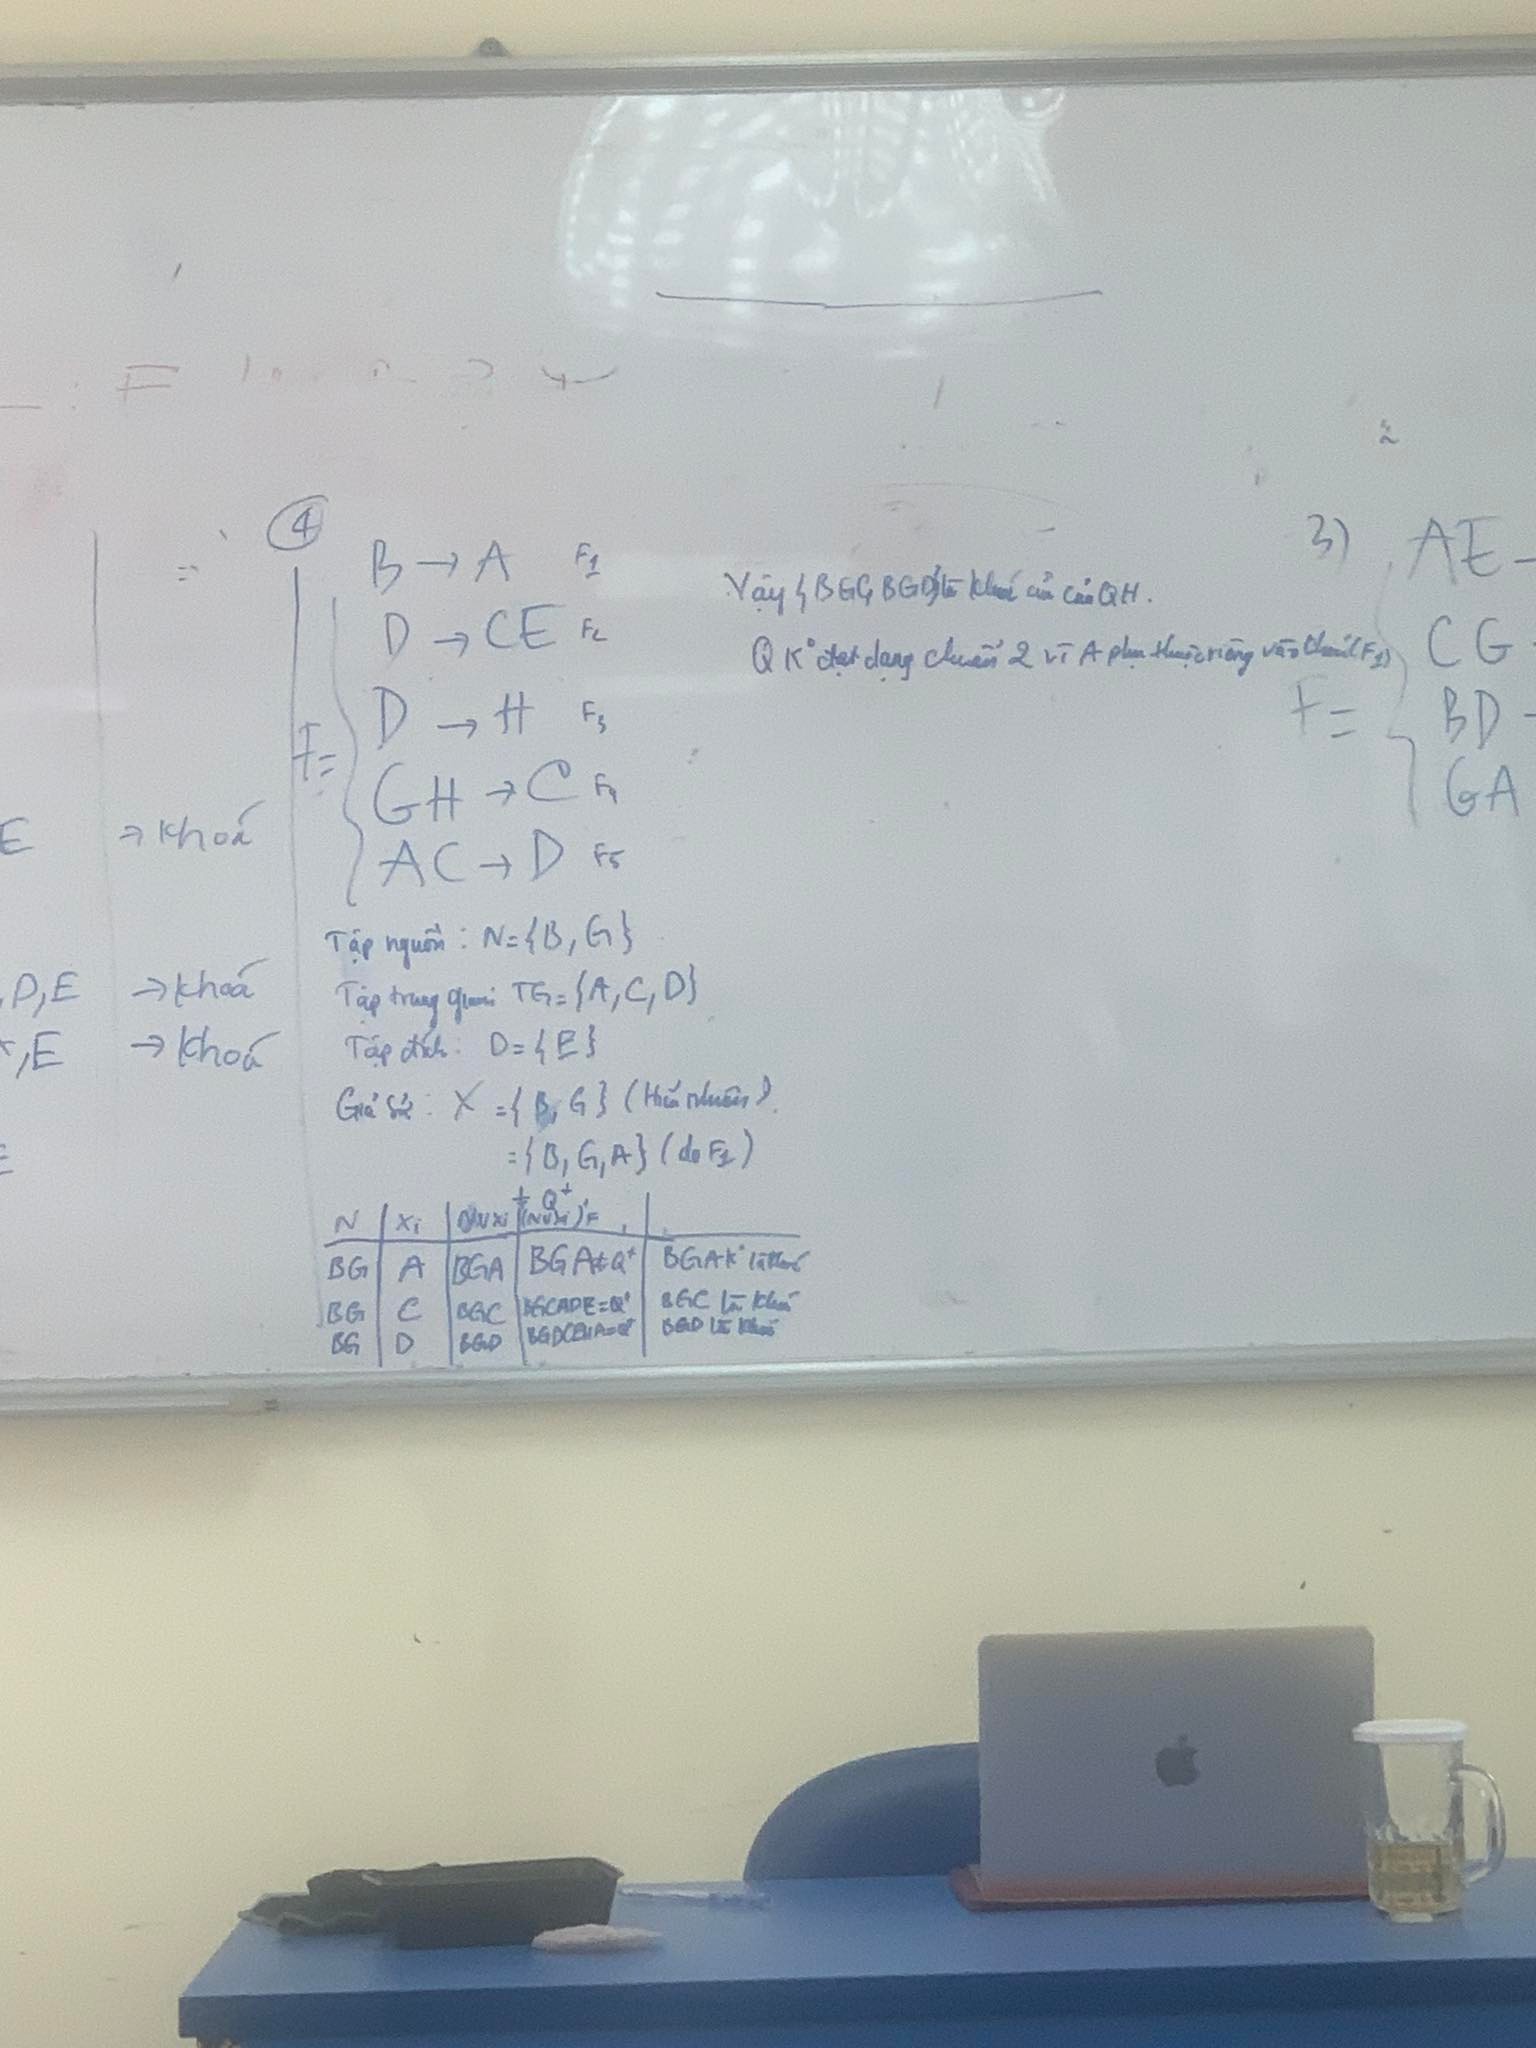 E → khoá
,D,E → khoá
,E → khoá
E
④
B → A F1
D → CE F2
D → H F3
F =
GH → C F4
AC → D F5
Tập nguồn : N = {B, G}
Tập trung gian TG = {A, C, D}
Tập đích : D = {E}
Giả sử : X = {B, G} (Hiển nhiên)
= {B, G, A} (do F1)
N Xi NUXi (NUXi)+F Q+
BG A BGA BGA ≠ Q+ BGA K° là khoá
BG C BGC BGCADE = Q+ BGC là khoá
BG D BGD BGDCEHA = Q+ BGD là khoá
Vậy {BGC, BGD} là khoá của QH.
Q K° đạt dạng chuẩn 2 vì A phụ thuộc riêng vào khoá (F1)
3) AE →
CG
F =
BD
GA